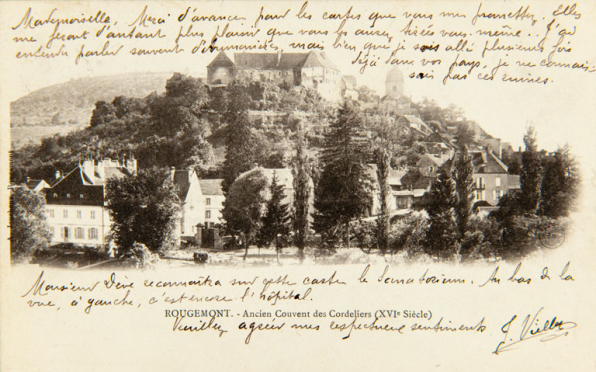 Mademoiselle, Merci d'avance pour les cartes que vous me promettez. Elles
me feront d'autant plus plaisir que vous les aurez tirées vous-même.. J'ai
entendu parler souvent d' mais bien que je sois allé plusieurs fois
déjà dans vos pays, je ne connais
pas ces ruines.
Monsieur Dève reconnaîtra sur cette carte le Sanatorium. Au bas de la
vue, à gauche, c'est encore l'hôpital.
ROUGEMONT. - Ancien Couvent des Cordeliers (XVIe Siècle)
Veuillez agréer mes respectueux sentiments